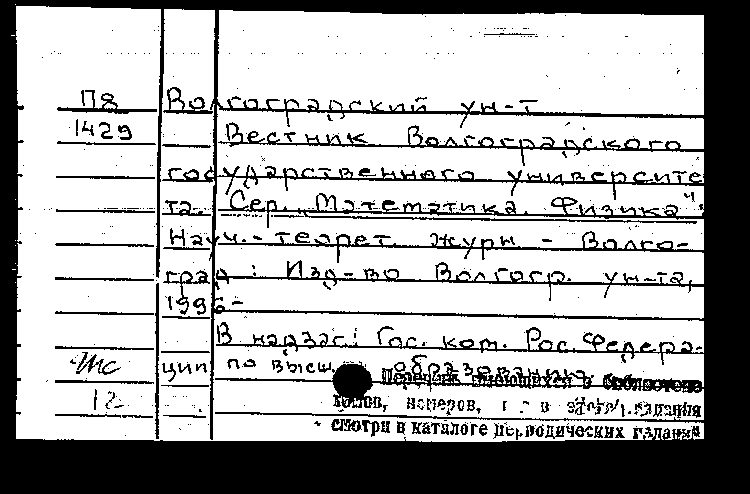 П8 Волгоградский ун-т
1429 Вестник Волгоградского
государственного университе
та. Сер. „Математика. Физика“:
Науч.-теорет. журн – Волго-
град: Изд-во Волгогр. ун-та,
1996-
В надзаг: Гос. ком. Рос. Федера-
ции по высш. образованию
Перечень имеющихся в библиотеке
томов, номеров, и т в этого издания
смотри в каталоге периодических изданий
12